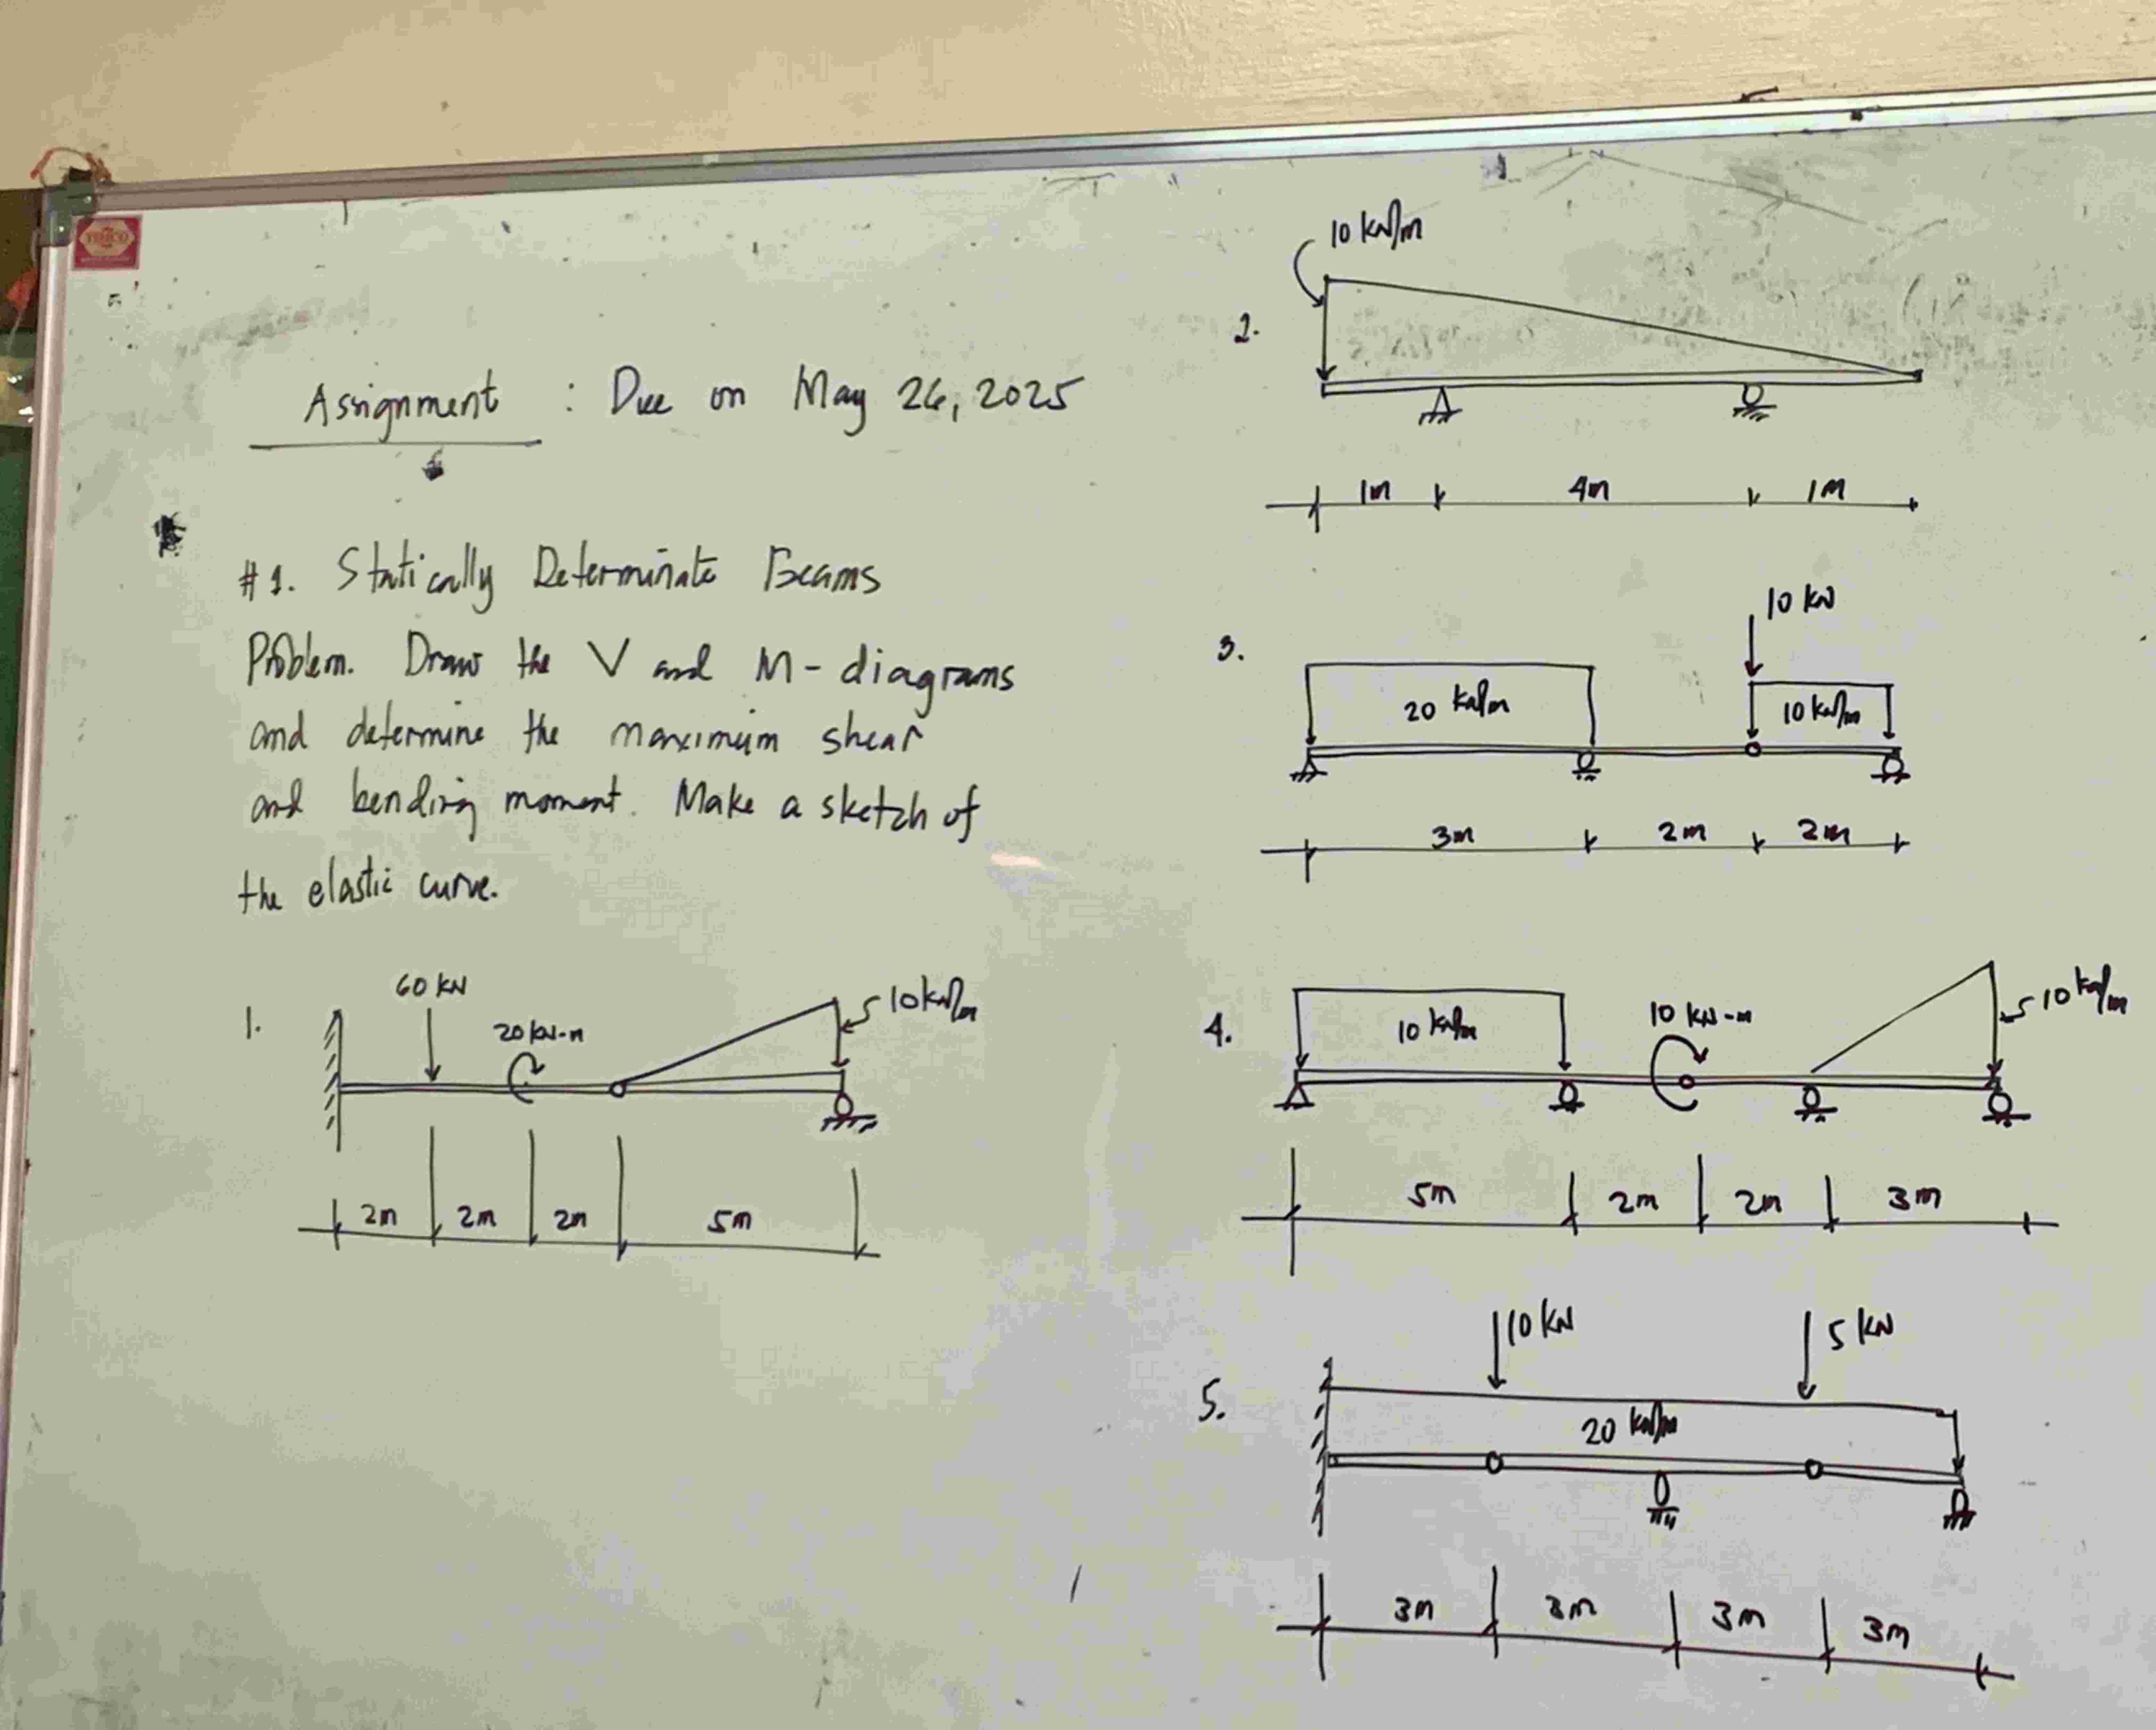 TEMCO
Assignment : Due on May 26, 2025
#1. Statically Determinate Beams
Problem. Draw the V and M - diagrams
and determine the maximum shear
and bending moment. Make a sketch of
the elastic curve.
1.
60 kN
20 kN-m
10 kN/m
2m 2m 2m 5m
2.
10 kN/m
1m 4m 1m
3.
10 kN
20 kN/m
10 kN/m
3m 2m 2m
4.
10 kN/m
10 kN-m
10 kN/m
5m 2m 2m 3m
5.
10 kN 5 kN
20 kN/m
3m 3m 3m 3m